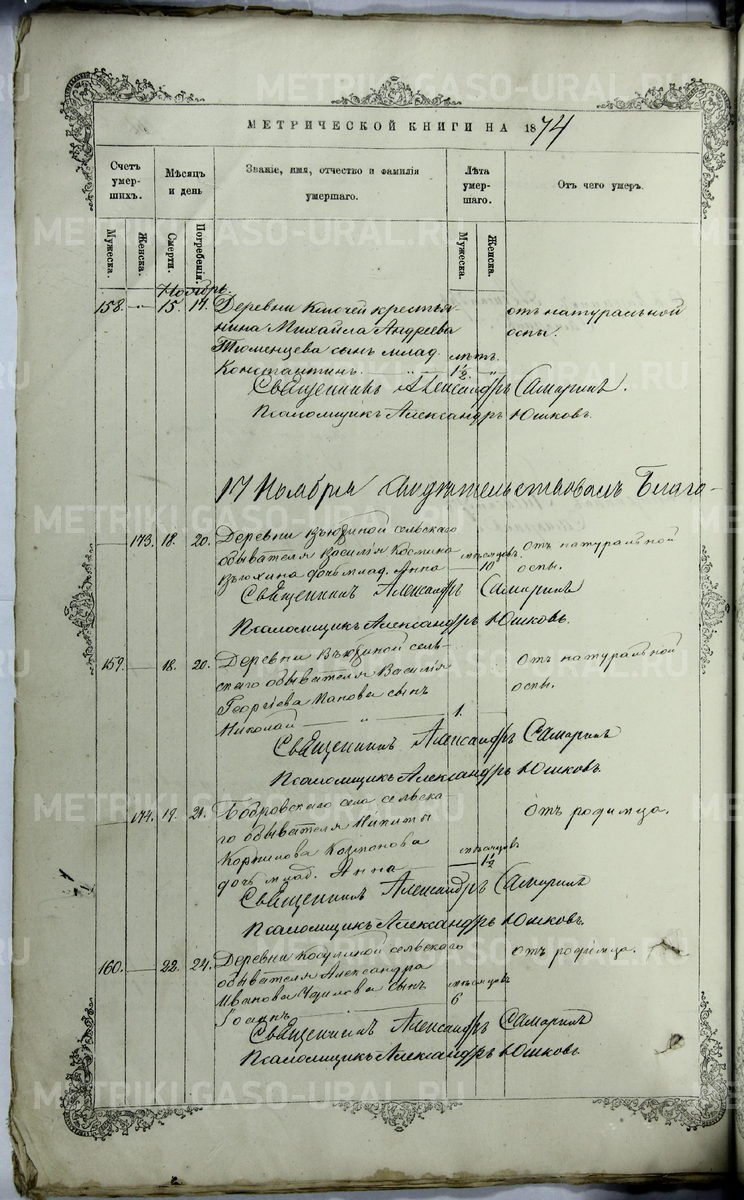 METRIKI.GASO-URAL.RU
МЕТРИЧЕСКОЙ КНИГИ НА 1874
Счетъ умерших.
Мѣсяцъ и день
Званіе, имя, отчество и фамилія умершаго.
Лѣта умершаго.
Отъ чего умеръ.
Мужеска.
Женска.
Смерти.
Погребенія.
Мужеска.
Женска.
Ноябрь.
158. 15. 17. Деревни Ключей крестья- отъ натуральной
нина Михаила Андреева оспы.
Тюменцева сынъ млад. лѣтъ.
Константинъ. 1½
Священникъ Александръ Самаринъ.
Псаломщикъ Александръ Юшковъ.
17 Ноября Свидѣтельствовалъ Благо-
173. 18. 20. Деревни Вьюхиной сельскаго отъ натуральной
обывателя Василія Космина мѣсяцовъ. оспы.
Вьюхина дочь млад. Анна 10
Священникъ Александръ Самаринъ
Псаломщикъ Александръ Юшковъ.
159. 18. 20. Деревни Вьюхиной сель- Отъ натуральной
скаго обывателя Василія оспы.
Георгіева Панова сынъ
Николай 1.
Священникъ Александръ Самаринъ
Псаломщикъ Александръ Юшковъ.
174. 19. 21. Бобровскаго села сельска- Отъ родимца.
го обывателя Никиты
Корнилова мѣсяцовъ
дочь млад. Анна 1½
Священникъ Александръ Самаринъ
Псаломщикъ Александръ Юшковъ.
160. 22. 24. Деревни Косулиной сельскаго отъ родимца.
обывателя Александра
Иванова сынъ мѣсяцовъ
Іоаннъ 6
Священникъ Александръ Самаринъ
Псаломщикъ Александръ Юшковъ